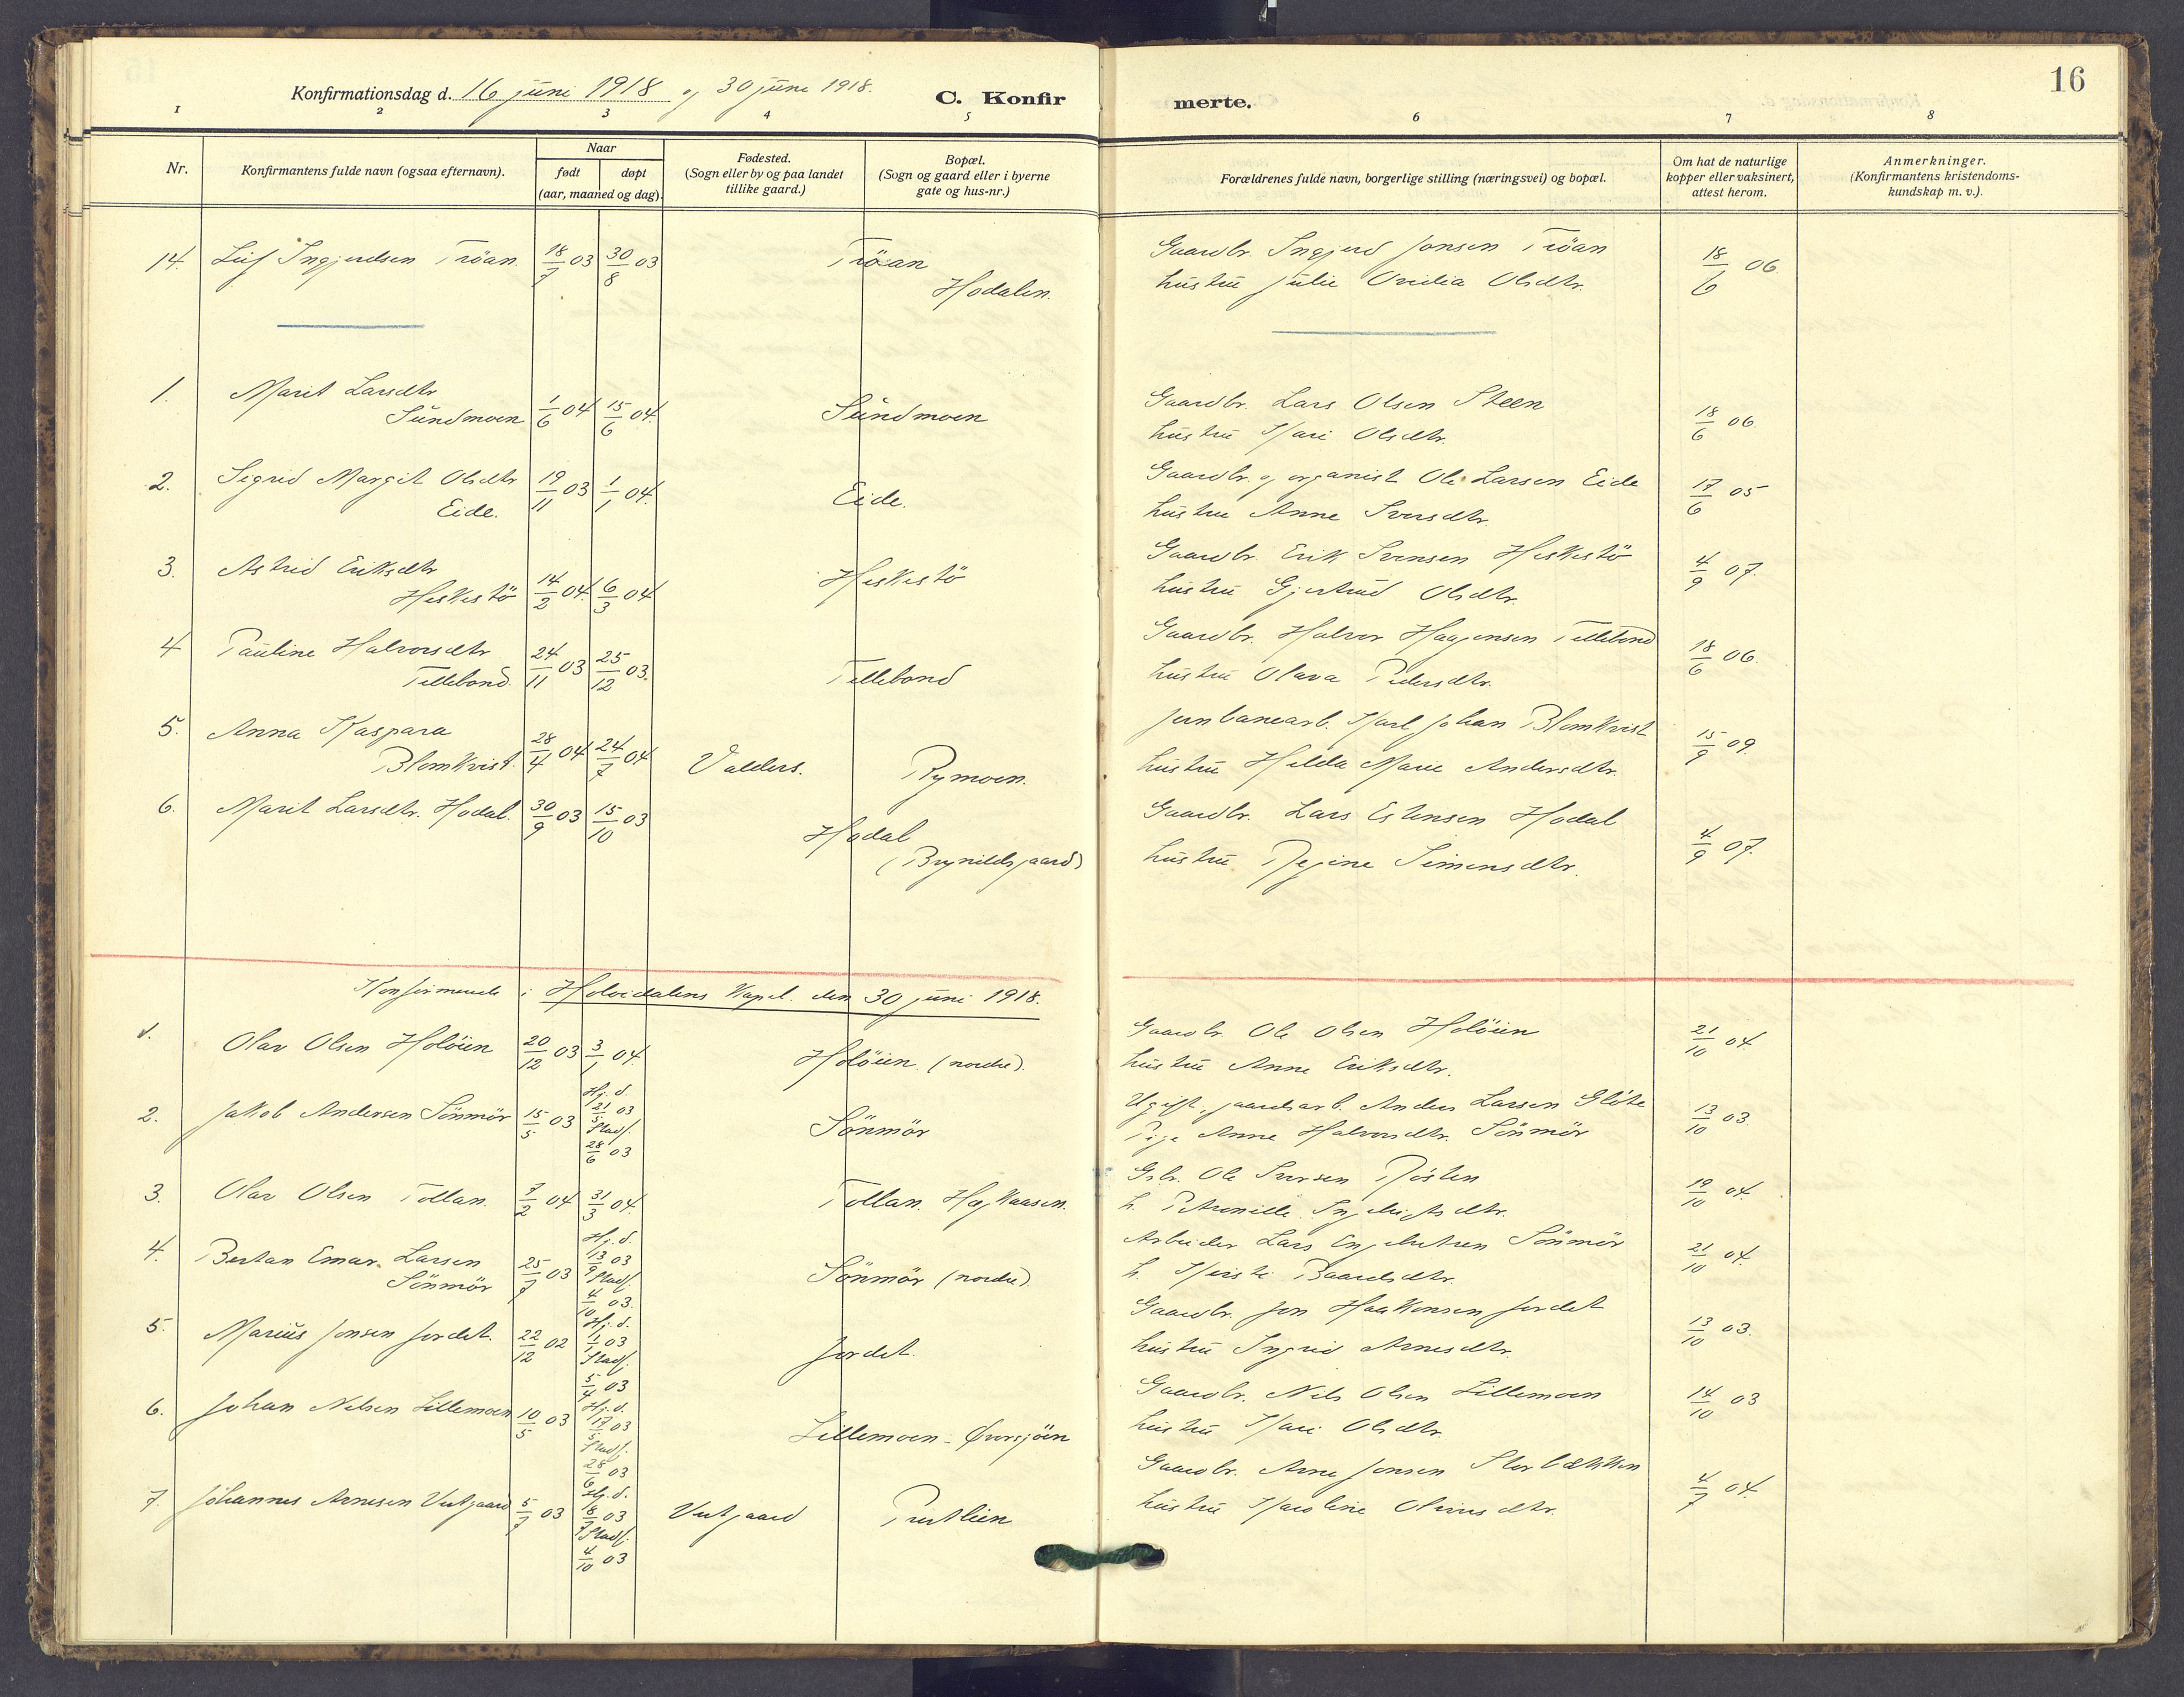 Konfirmationsdag d. 16 juni 1918 og 30 juni 1918.
C. Konfirmerte.
16
1 2 3 4 5 6 7 8
Nr.
Konfirmantens fulde navn (ogsaa efternavn).
Naar
født døpt
(aar, maaned og dag)
Fødested.
(Sogn eller by og paa landet
tillike gaard.)
Bopæl.
(Sogn og gaard eller i byerne
gate og hus-nr.)
Forældrenes fulde navn, borgerlige stilling (næringsvei) og bopæl.
Om hat de naturlige
kopper eller vaksinert,
attest herom.
Anmerkninger.
(Konfirmantens kristendoms-
kundskap m. v.).
14. Leif Ingjerdsen Tröan 18/7 03 30/8 03 Tröan Hodalen. Gaardbr. Ingjerd Jonsen Tröan 18/6 06
hustru Julie Ovidia Olsdtr.
1. Marit Larsdtr Sundmoen 1/6 04 15/6 04. Sundmoen Gaardbr. Lars Olsen Steen 18/6 06
hustru Kari Olsdtr.
2. Sigrid Margit Olsdtr Eide. 19/11 03 1/1 04. Eide. Gaardbr. og organist Ole Larsen Eide 17/6 05
hustru Anne Iversdtr.
3. Astrid Eriksdtr Heskestö 14/2 04. 6/3 04 Heskestö Gaardbr. Erik Svensen Heskestö 4/9 07.
hustru Gjertrud Olsdtr.
4 Pauline Halvorsdtr Tellebond. 24/11 03 25/12 03. Tellebond Gaardbr. Halvor Haagensen Tellebond 18/6 06.
hustru Olava Pedersdtr.
5. Anna Kaspara Blomkvist. 28/4 04 24/7 04 Valders. Rymoen. Jernbanearb. Karl Johan Blomkvist 15/9 09.
hustru Hilda Marie Andersdtr.
6. Marit Larsdtr. Hodal. 30/9 03 15/10 03 Hodal (Brynildsgaard) Gaardbr. Lars Estensen Hodal 4/9 07.
hustru Regine Simensdtr.
Konfirmerte i Holöidalens Kapel. den 30 juni 1918.
1. Olav Olsen Holöien 20/12 03 3/1 04. Holöien (nordre). Gaardbr. Ole Olsen Holöien 21/10 04
hustru Anne Eriksdtr.
2. Jakob Andersen Sönmör 15/5 03 Hj. d. 21/5 03 Stadf. 28/6 03 Sönmör Ugift, gaardsarb. Anders Larsen Glöte 13/10 03
Pige Anne Halvorsdtr. Sönmör
3. Olav Olsen Tollan. 7/2 04 31/3 04. Tollan. Haakaasen. Gbr. Ole Iversen Rösten 19/10 04.
h. Petronille Ingebrigtsdtr.
4. Bertan Emar Larsen Sönmör 25/7 03 Hj. d. 13/9 03 Stadf. 4/10 03. Sönmör (nordre) Arbeider Lars Engebretsen Sönmör 21/10 04.
h. Kjersti Baardsdtr.
5. Marius Jonsen Jordet. 22/12 02 Hj. d. 1/1 03 Stadf. 5/4 03 Jordet. Gaardbr. Jon Haakonsen Jordet 13/10 03.
hustru Ingrid Arnesdtr.
6. Johan Nilsen Lillemoen 10/5 03 Hj. d. 17/5 03 Stadf. 28/6 03 Lillemoen - Øversjöen Gaardbr. Nils Olsen Lillemoen 14/10 03
hustru Kari Olsdtr.
7. Johannes Arnesen Vestgaard 5/7 03 Hj. d. 18/7 03 Stadf. 4/10 03 Vestgaard Prestlien Gaardbr. Arne Jonsen Storbækken 4/7 04.
hustru Karoline Oliversdtr.